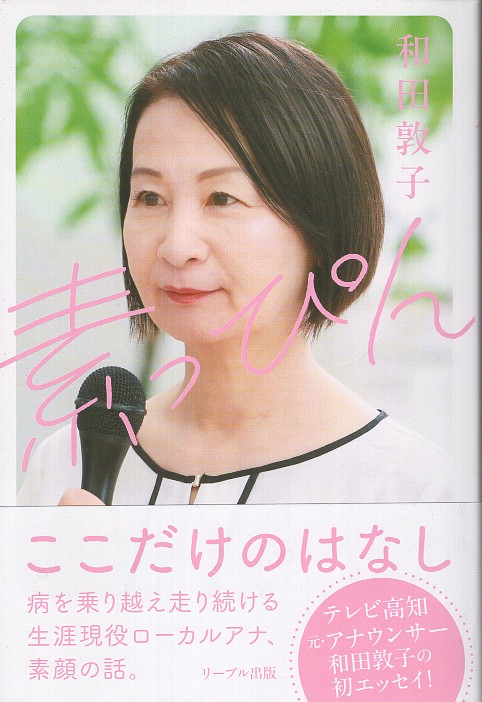 和田敦子
素っぴん
ここだけのはなし
病を乗り越え走り続ける
生涯現役ローカルアナ、
素顔の話。
リーブル出版
テレビ高知
元・アナウンサー
和田敦子の
初エッセイ!